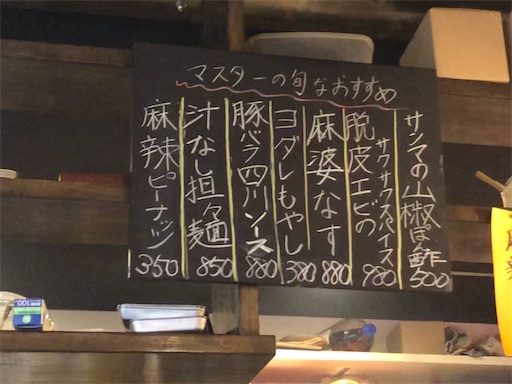 マスターの旬なおすすめ
サンマの山椒ぽん酢 500
脱皮エビの
サクサクスパイス 980
麻婆なす 880
ヨダレもやし 380
豚バラ四川ソース 880
汁なし担々麺 850
麻辣ピーナッツ 350